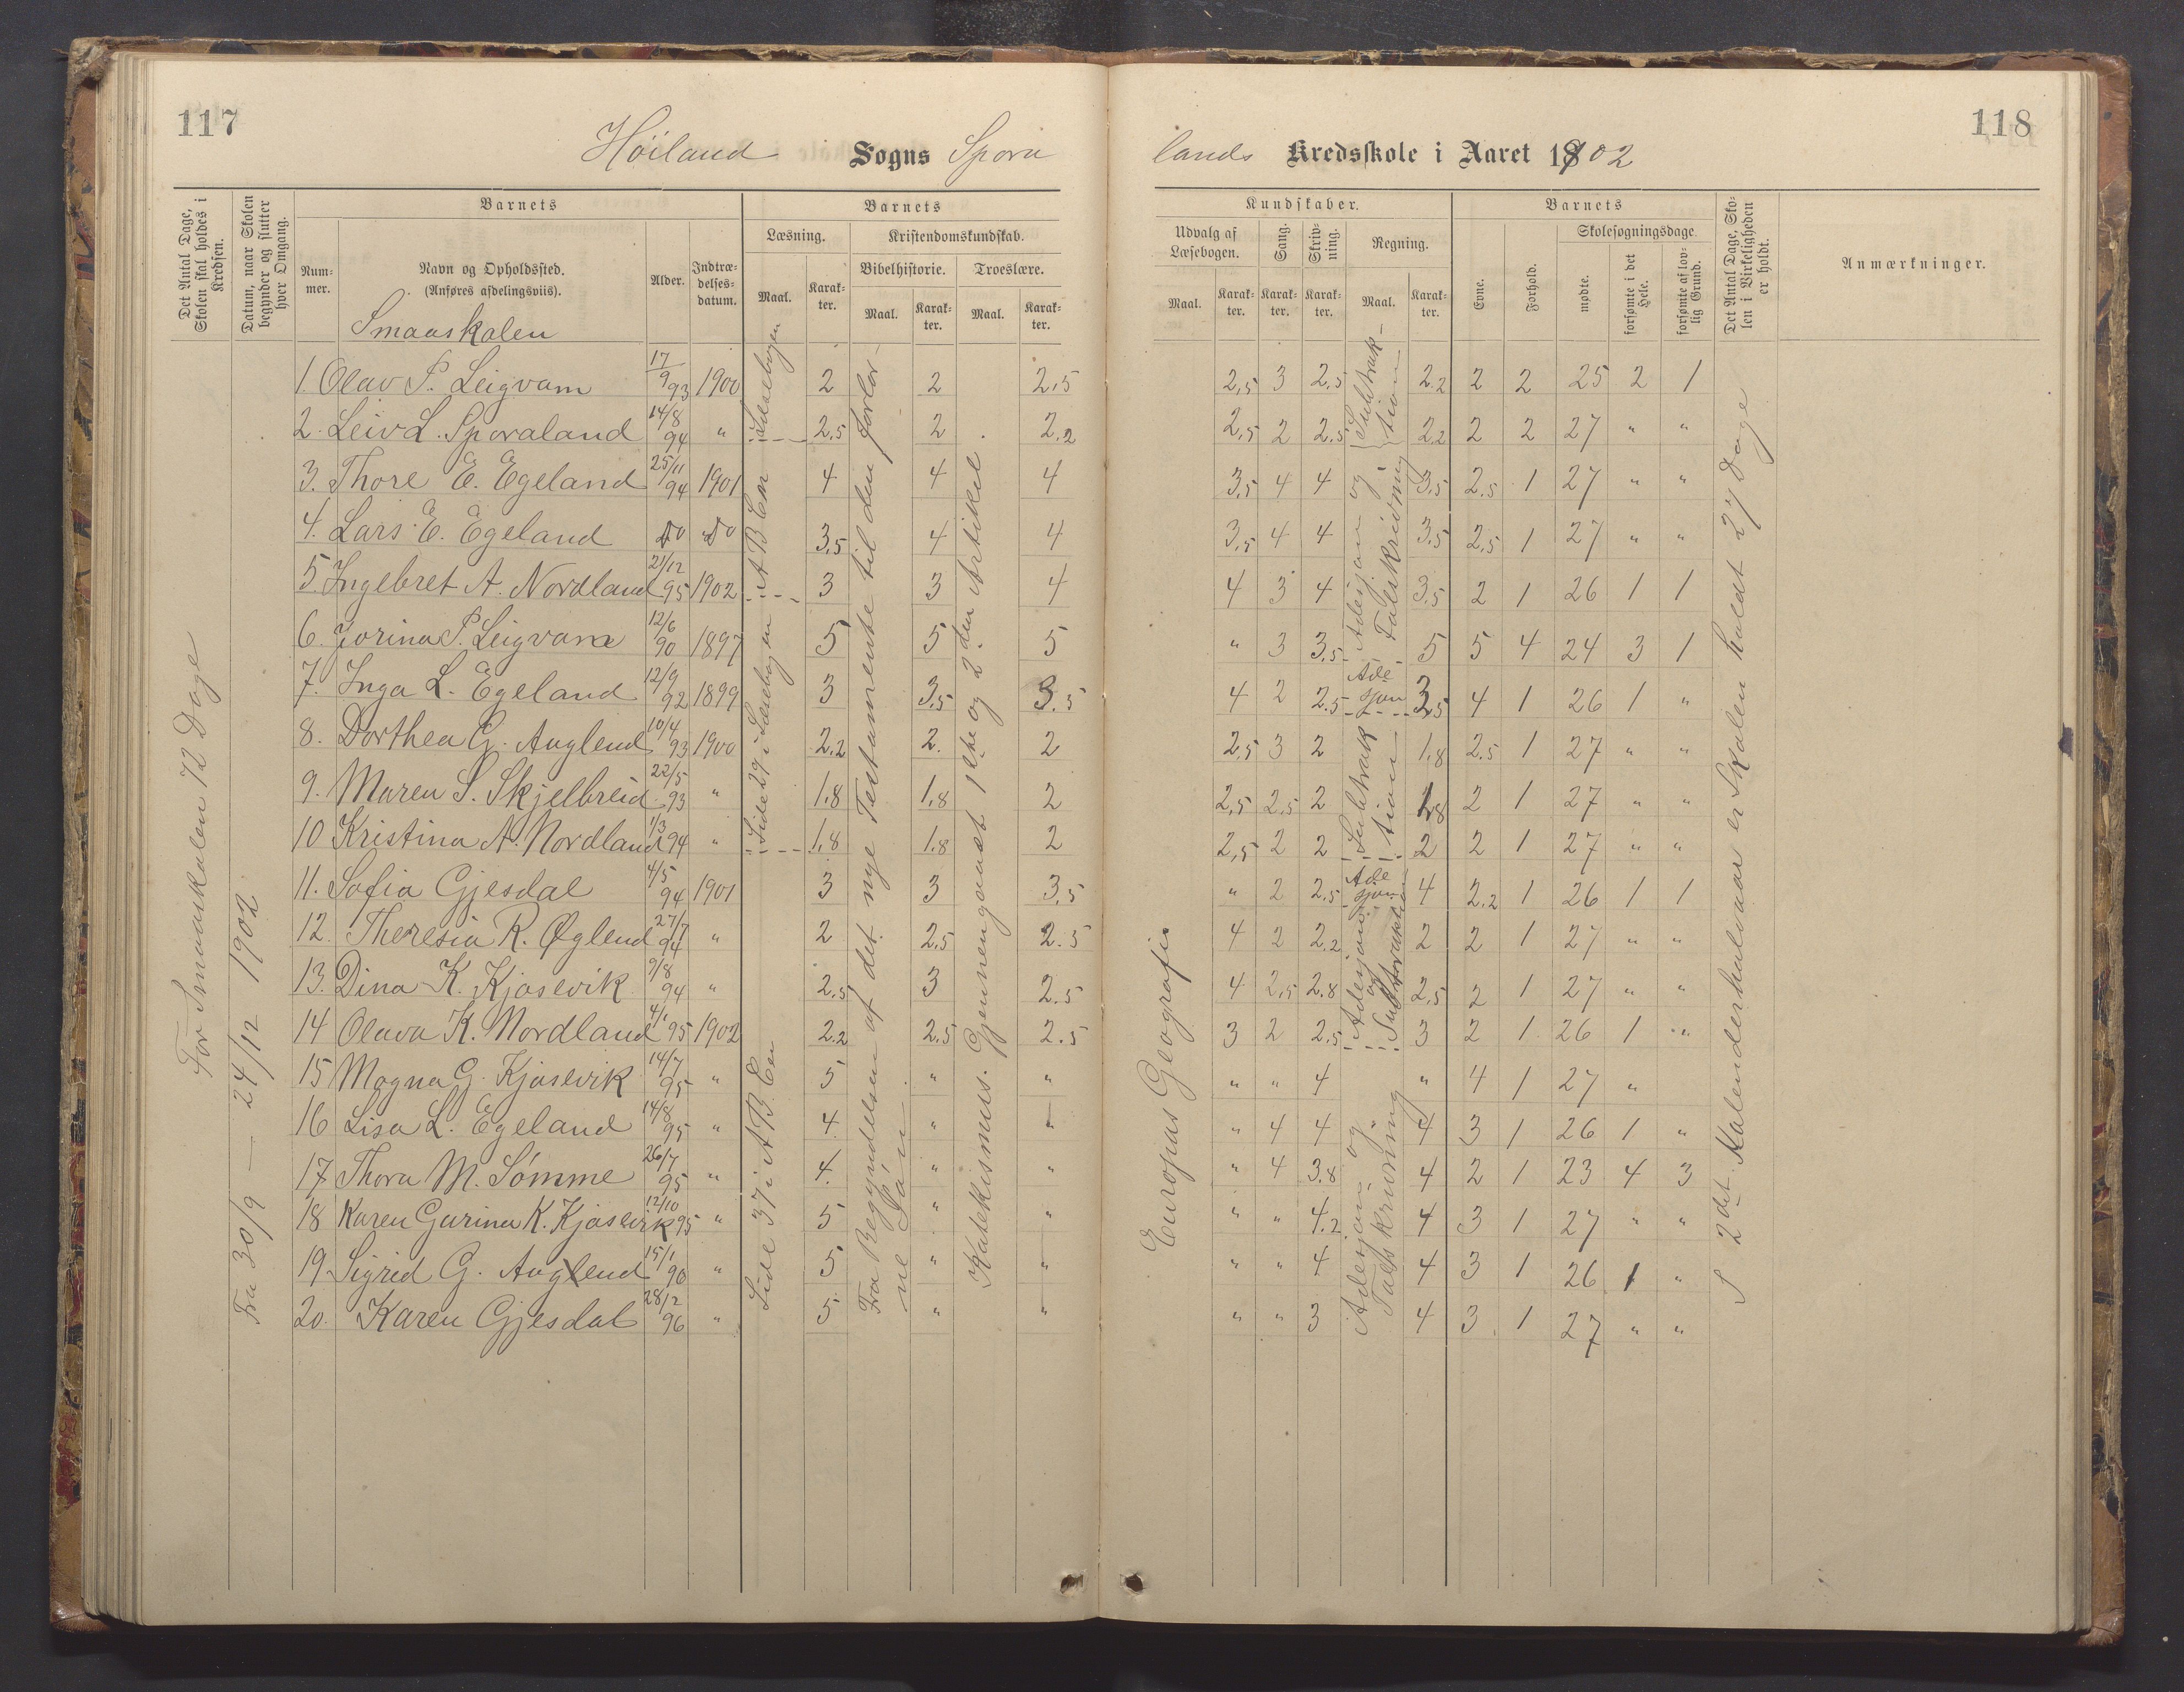 117
118
Höiland Sogns Spora
lands Kredsskole i Aaret 1902
Det Antal Dage, Skolen skal holdes i Kredsen.
Datum, naar Skolen begynder og slutter hver Omgang.
Barnets
Barnets
Nummer.
Navn og Opholdssted.
(Anføres afdelingsviis).
Alder.
Indtrædelsesdatum.
Læsning.
Kristendomskundskab.
Bibelhistorie. Troeslære.
Maal. Karakter. Maal. Karakter. Maal. Karakter.
Kundskaber.
Barnets
Udvalg af Læsebogen. Sang. Skrivning. Regning.
Maal. Karakter. Karakter. Karakter. Maal. Karakter.
Evne. Forhold.
Skolesøgningsdage.
mødte. forsømte i det Hele. forsømte af lovlig Grund.
Det Antal Dage, Skolen i Virkeligheden er holdt.
Anmærkninger.
Smaaskolen
For Smaaskolen 72 Dage
Fra 30/9 — 24/12 1902
1. Olav P. Leigvam 17/9 93 1900 2 2 2,5 2,5 3 2,5 2.2 2 2 25 2 1
2. Leiv L. Sporaland 14/8 94 " 2.5 2 2.2 2,5 2 2.5 2.2 2 2 27 " "
3. Thore E. Egeland 25/11 94 1901 4 4 4 3,5 4 4 3,5 2.5 1 27 " "
4. Lars E. Egeland do do 3.5 4 4 3,5 4 4 3.5 2.5 1 27 " "
5. Ingebret A. Nordland 21/12 95 1902 3 3 4 4 3 4 3.5 2 1 26 1 1
6. Jorina P. Leigvam 12/6 90 1897 5 5 5 " 3 3.5 5 5 4 24 3 1
7. Inga L. Egeland 12/9 92 1899 3 3.5 3.5 4 2 2.5 3,5 4 1 26 1 "
8. Dorthea G. Auglend 10/4 93 1900 2.2 2. 2 2,5 3 2 1.8 2.5 1 27 " "
9. Maren S. Skjelbreid 22/5 93 " 1.8 1.8 2 2,5 2,5 2 1.8 2 1 27 " "
10 Kristina A. Nordland 1/3 94 " 1.8 1.8 2 2,5 2 2 2 2 1 27 " "
11. Sofia Gjesdal 4/5 94 1901 3 3 3.5 " 2 2.5 4 2.2 1 26 1 1
12. Theresia R. Øglend 27/7 94 " 2 2.5 2.5 4 2 2.2 2 2 1 27 " "
13. Dina K. Kjosevik 9/8 94 " 2.5 3 2.5 4 2,5 2.8 2,5 2 1 27 " "
14 Olava K. Nordland 4/1 95 1902 2.2 2.5 2.5 3 2 2.5 3 2 1 26 1 "
15 Magna G. Kjosevik 14/7 95 " 5 " " " " 4 " 4 1 27 "
16 Lisa L. Egeland 14/8 95 " 4 " " " 4 4 4 3 1 26 1 "
17 Thora M. Sömme 26/7 95 " 4. " " " 4 3.8 4 2 1 23 4 3
18 Karen Gurina K. Kjosevik 12/10 95 " 5 " " " " 4.2 4 3 1 27 " "
19 Sigrid G. Auglend 15/1 90 " 5 " " " " 4 4 3 1 26 1 "
20. Karen Gjesdal 28/2 96 " 5 " " " " 3 4 3 1 27 " "
A B Cen Læsebogen
Side 29 i Læsebogen
Side 37 i A B. Cen
Fra Begyndelsen af det nye Testamente til den forlorne Sön
Katekismus. Gjennengaaet 1ste og 2den Artikel
Europas Geografi
Adesjon og Subtraktion
Talskrivning
Adesjon
Subtraktion
Adesjon
Adesjon og Subtraktion
Adesjon og
Talskrivning
I 2det Kalenderhalvaar er Skolen holdt 27 Dage